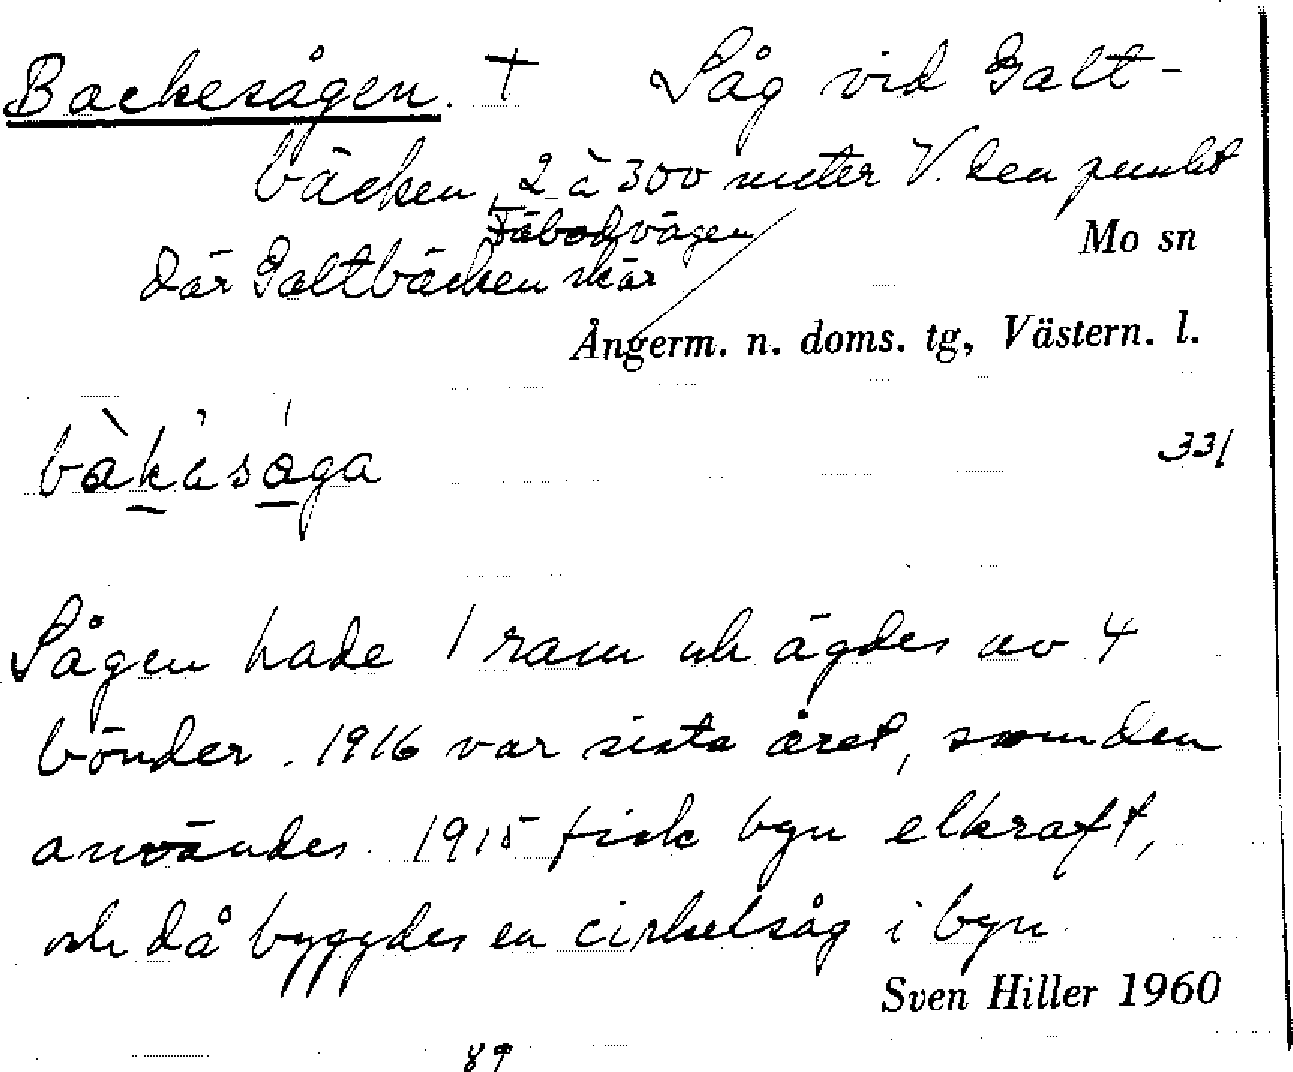 Backesågen. † Såg vid Galt-
bäcken, 2 à 300 meter V. den punkt
Mo sn
där Galtbäcken skär Fäbodvägen
Ångerm. n. doms. tg, Västern. l.
331
bàkåsåga
Sågen hade 1 ram och ägdes av 4
bönder. 1916 var sista året, som den
användes. 1915 fick byn elkraft,
och då byggdes en cirkelsåg i byn.
Sven Hiller 1960
89